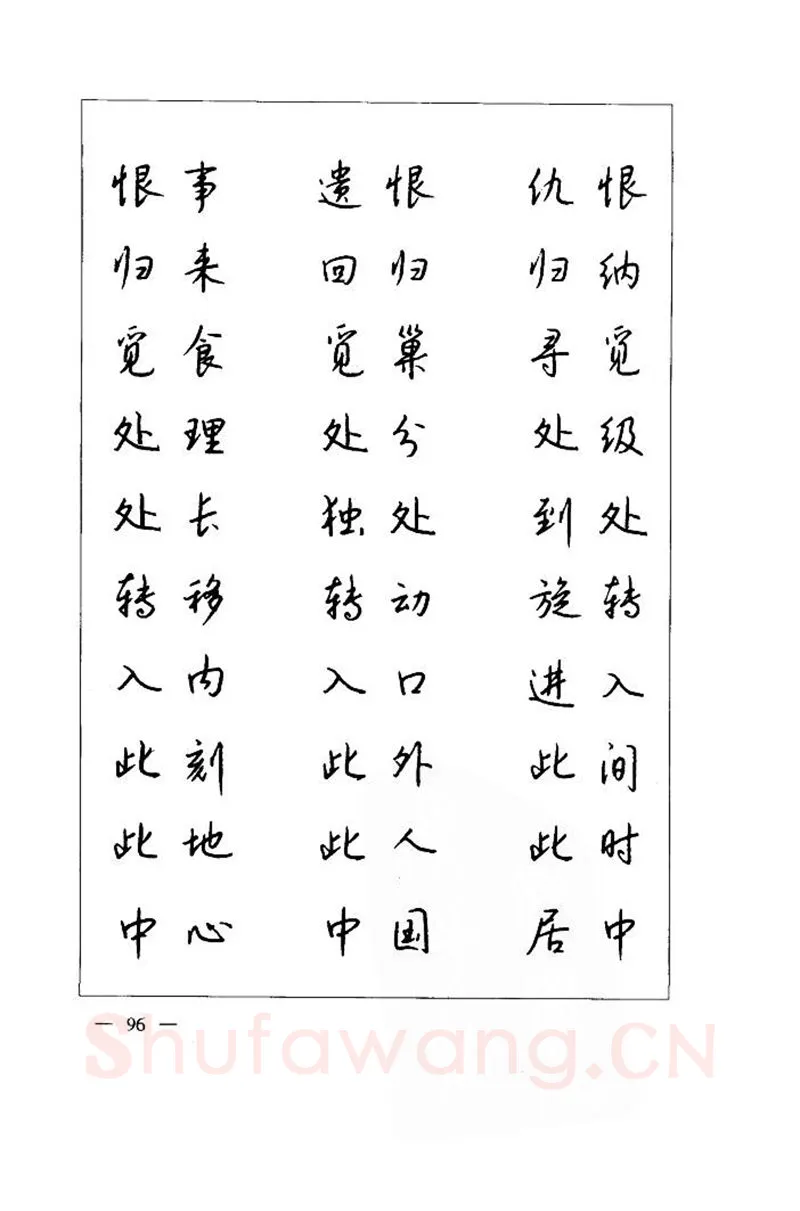 恨事 遗恨 仇恨
归来 回归 归纳
觅食 觅巢 寻觅
处理 处分 处级
处长 独处 到处
转移 转动 旋转
入内 入口 进入
此刻 此外 此间
此地 此人 此时
中心 中国 居中
— 96 —
Shufawang.CN